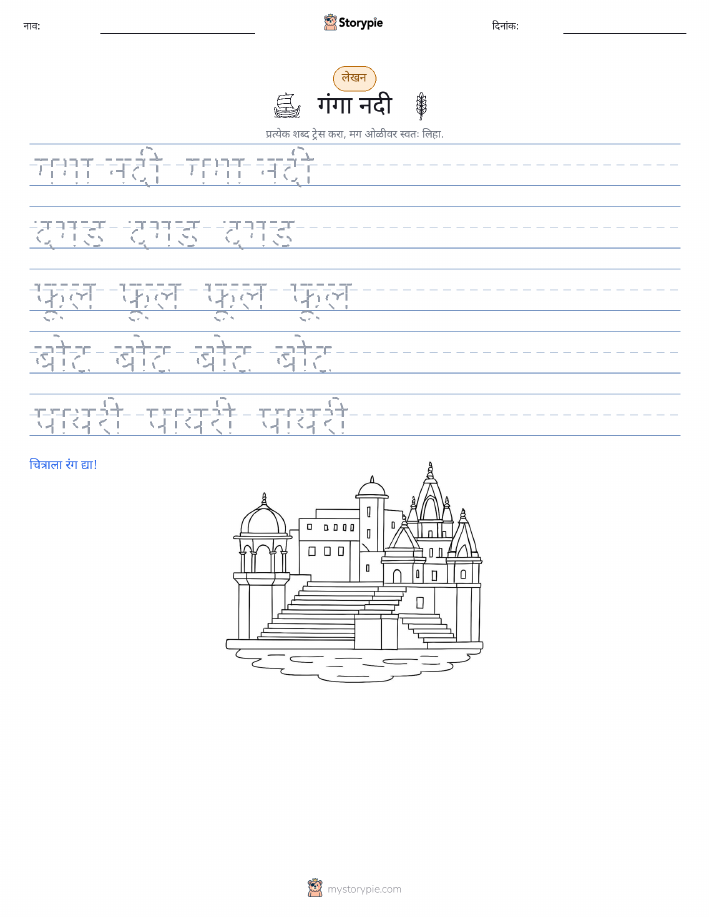 नाव:
Storypie
दिनांक:
लेखन
गंगा नदी
प्रत्येक शब्द ट्रेस करा, मग ओळीवर स्वतः लिहा.
गंगा नदी गंगा नदी
दगड दगड दगड
फूल फूल फूल फूल
बोट बोट बोट बोट
पायरी पायरी पायरी
चित्राला रंग द्या!
mystorypie.com